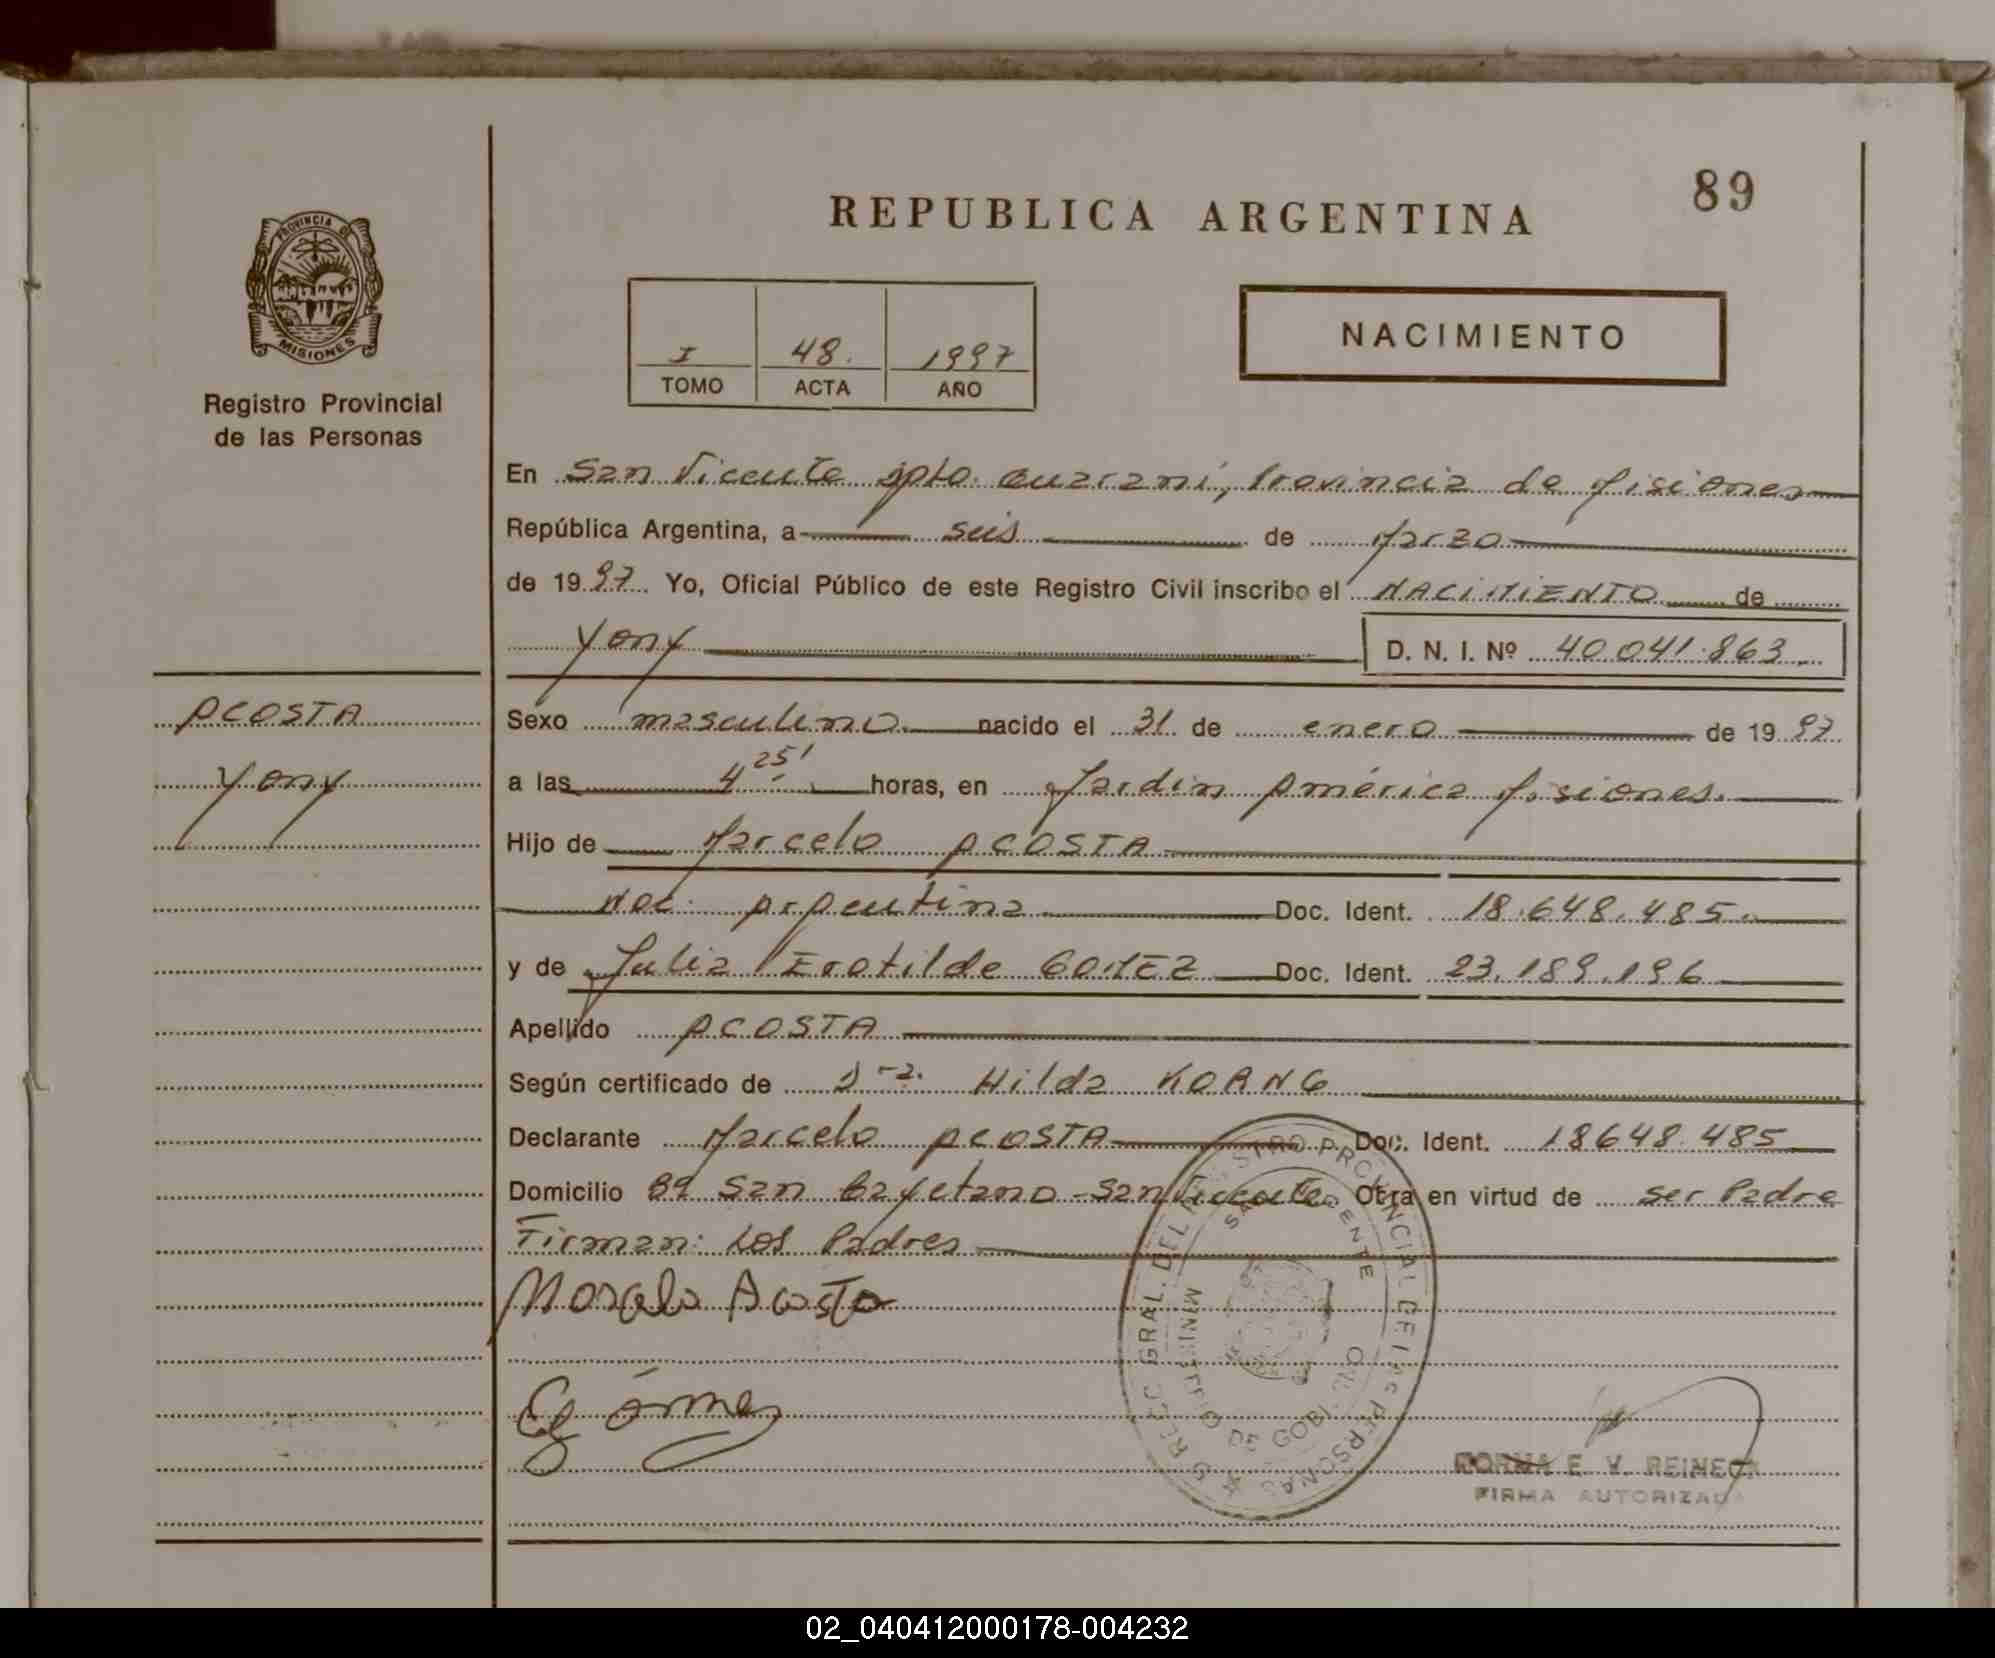 89
REPUBLICA ARGENTINA
PROVINCIA DE
MISIONES
Registro Provincial
de las Personas
I 48. 1997
TOMO ACTA AÑO
NACIMIENTO
En San Vicente Dpto. Guaraní, Provincia de Misiones
República Argentina, a seis de Marzo
de 1997 Yo, Oficial Público de este Registro Civil inscribo el NACIMIENTO de
Yony D. N. I. Nº 40.041.863
ACOSTA
Yony
Sexo masculino nacido el 31 de enero de 1997
a las 4 25' horas, en Jardin América Misiones.
Hijo de Marcelo ACOSTA
Nac. Argentina Doc. Ident. 18.648.485.
y de Julia Erotilde GOMEZ Doc. Ident. 23.189.196
Apellido ACOSTA
Según certificado de Dra. Hilda KOANG
Declarante Marcelo ACOSTA Doc. Ident. 18648.485
Domicilio Bº San Cayetano - San Vicente Otra en virtud de ser Padre
Firman: Los Padres
Marcelo Acosta
Gómez
REGISTRO PROVINCIAL DE LAS PERSONAS
SAN VICENTE
MINISTERIO DE GOBIERNO
NORMA E. V. REINECK
FIRMA AUTORIZADA
02_040412000178-004232